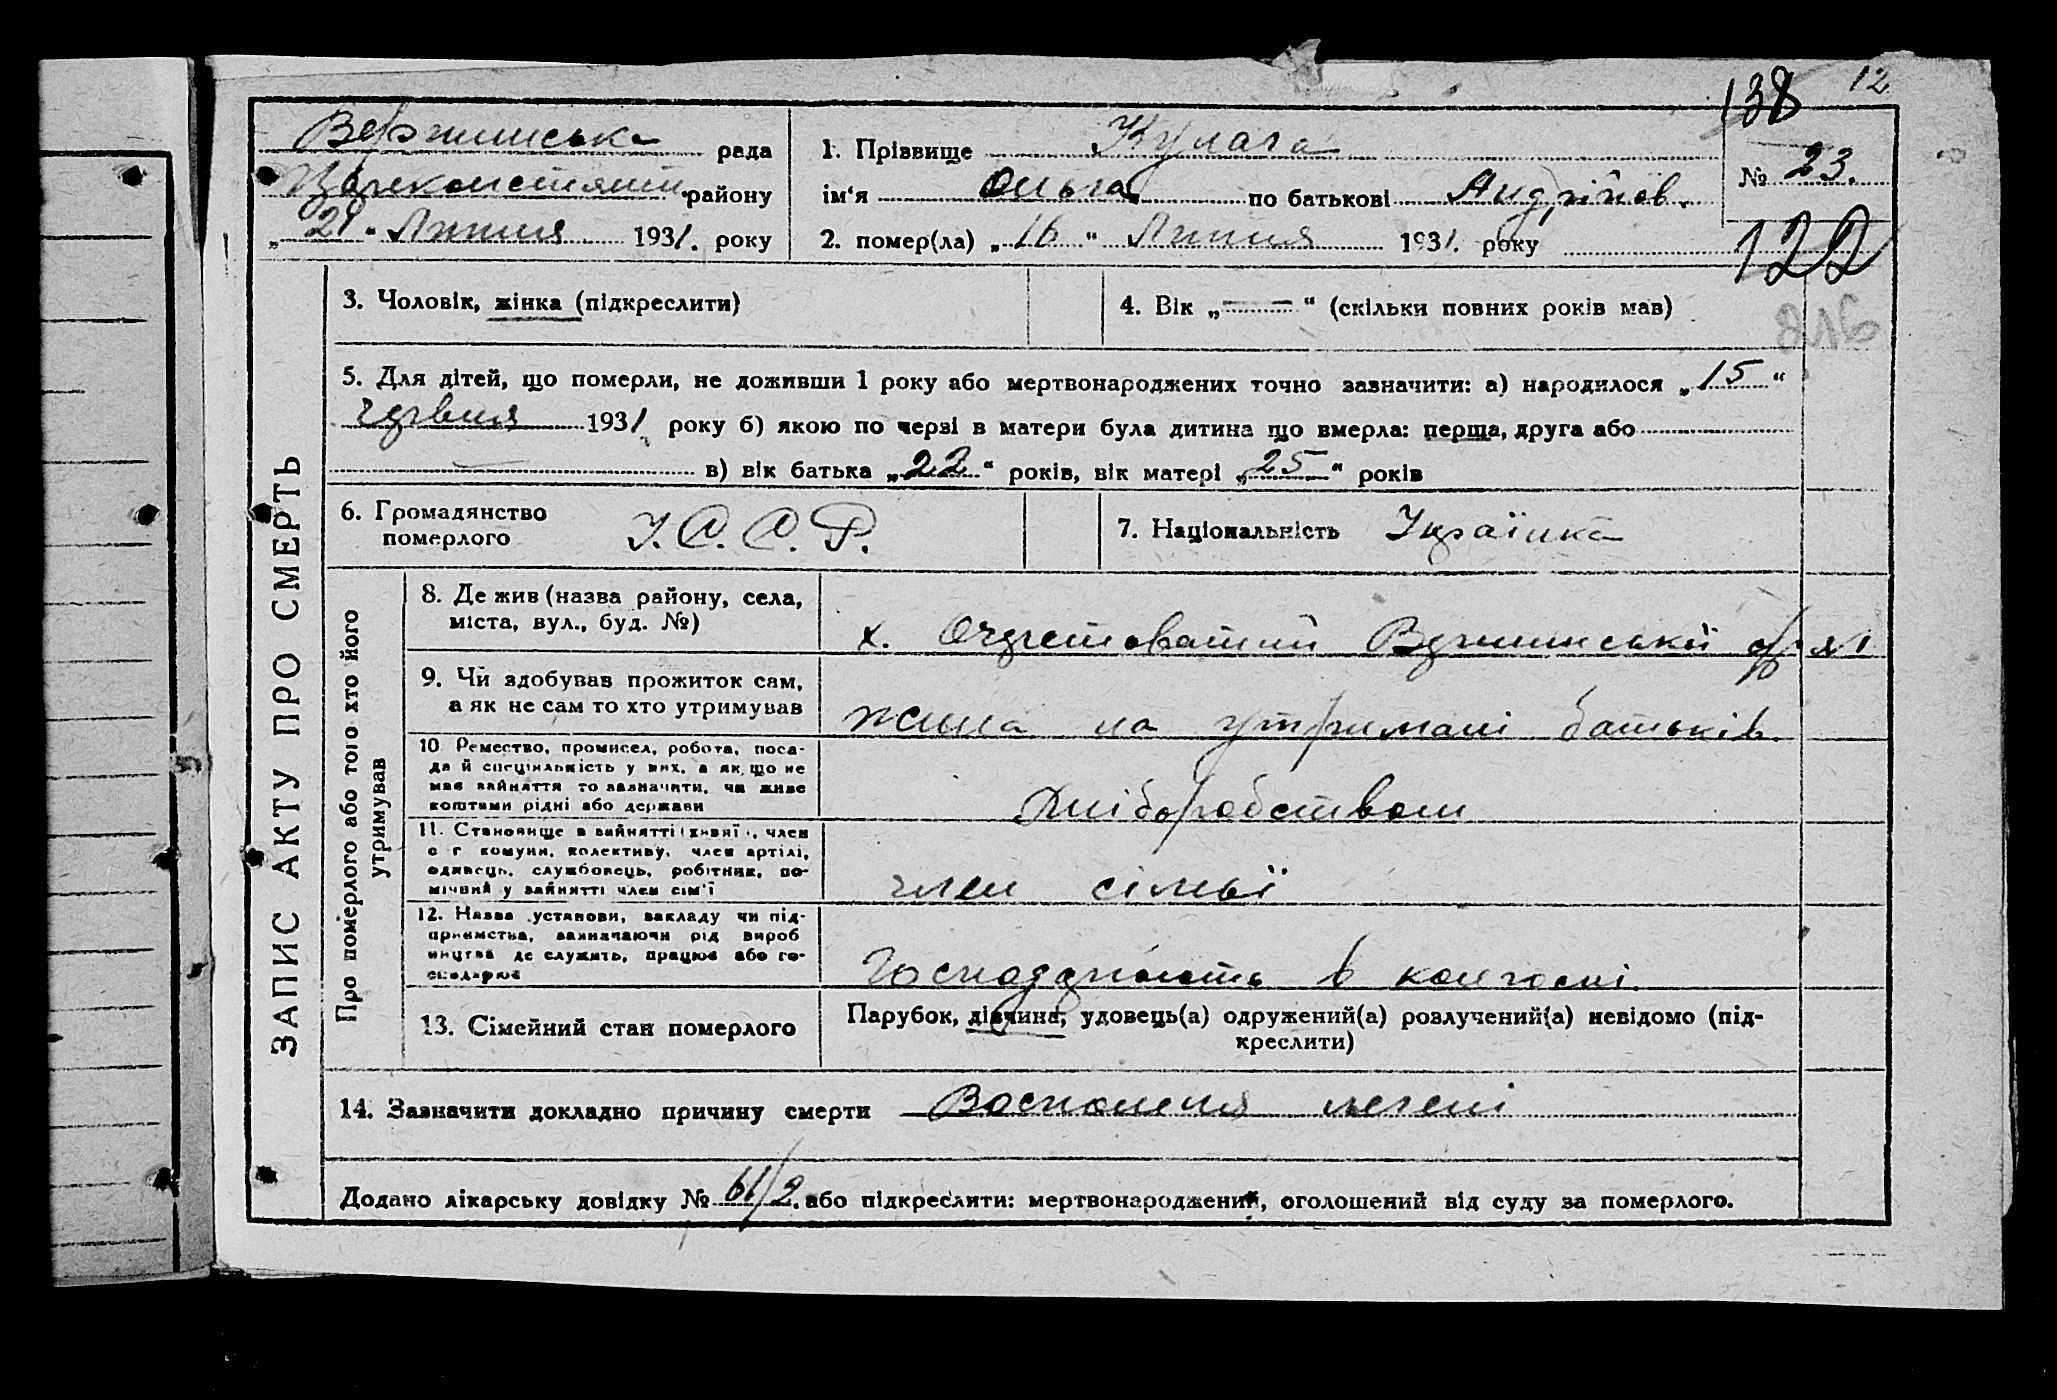 138 12
Вержинська рада
району
„ 29 “ Липня 1931. року
1. Пріввище Кулага
ім‘я Ольга по батькові Андріїов.
2. помер(ла) „ 16 “ Липня 1931. року
№ 23.
122
816
ЗАПИС АКТУ ПРО СМЕРТЬ
3. Чоловік, жінка (підкреслити)
4. Вік „ — “ (скільки повних років мав)
5. Для дітей, що померли, не доживши 1 року або мертвонароджених точно зазначити: а) народилося „ 15 “
червня 1931 року б) якою по черзі в матери була дитина що вмерла: перша, друга або
— в) вік батька „ 22 “ років, вік матері „ 25 “ років
6. Громадянство
померлого У.С.С.Р.
7. Національність Українка
Про померлого або того хто його
утримував
8. Де жив (назва району, села,
міста, вул., буд. №)
х. Очеретоватий Вержинської с/ради
9. Чи здобував прожиток сам,
а як не сам то хто утримував
жила на утримані батьків.
10 Ремество, промисел, робота, поса-
да й спеціяльність у них, а як що не
мав зайняття то зазначити, чи живе
коштами рідні або держави
Хліборобством
11. Становище в зайнятті (живиї), член
с г комуни, колективу, член артілі,
одивець, службовець, робітник, по-
мічний у зайнятті член сім'ї
член сімьї
12. Назва установи, закладу чи під-
приємства, зазначаючи рід вироб
ництва де служить, працює або го-
сподарює
Господарюють в колгоспі.
13. Сімейний стан померлого
Парубок, дівчина, удовець(а) одружений(а) розлучений(а) невідомо (під-
креслити)
14. Зазначити докладно причину смерти Воспоління легені
Додано лікарську довідку № 61/2. або підкреслити: мертвонароджений, оголошений від суду за померлого.